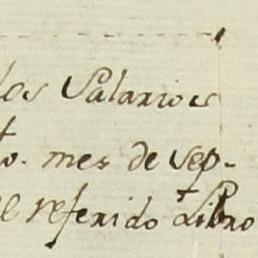 los Salarios
to. mes de sep-
el referido Libro